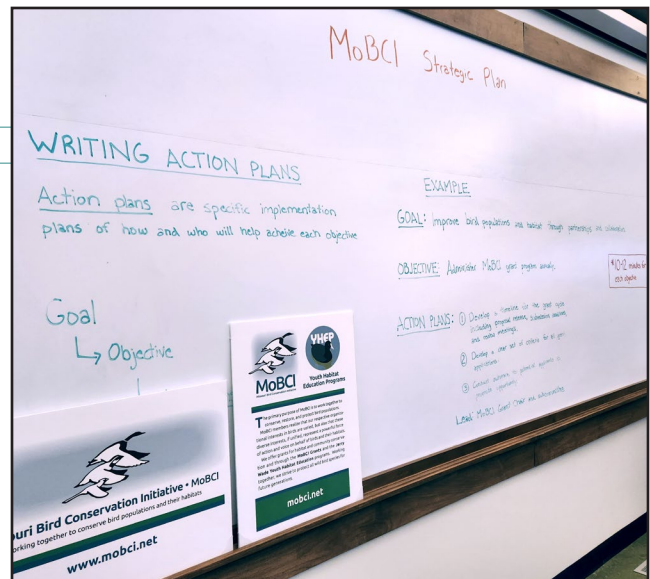 MoBCI Strategic Plan
WRITING ACTION PLANS
Action plans are specific implementation
plans of how and who will help acheive each objective
Goal
↳ Objective
EXAMPLE
GOAL: improve bird populations and habitat through partnerships and collaboration
OBJECTIVE: Administer MoBCI grant program annually.
*10-12 minutes for
each objective
ACTION PLANS: ① Develop a timeline for the grant cycle
including proposal review, submission deadlines,
and review meetings.
② Develop a clear set of criteria for all grant
applications.
③ Conduct outreach to potential applicants to
promote opportunity
Lead: MoBCI Grant Chair and subcommittee
MoBCI
YHEP
Youth Habitat
Education Programs
The primary purpose of MoBCI is to work together to
conserve, restore, and protect bird populations.
MoBCI members realize that our respective organiza-
tional interests in birds are varied, but also that these
diverse interests, if unified, represent a powerful force
of action and voice on behalf of birds and their habitats.
We offer grants for habitat and community conserva-
tion and through the MoBCI Grants and the Jerry
Wade Youth Habitat Education programs. Working
together, we strive to protect all wild bird species for
future generations.
mobci.net
ouri Bird Conservation Initiative • MoBCI
orking together to conserve bird populations and their habitats
www.mobci.net